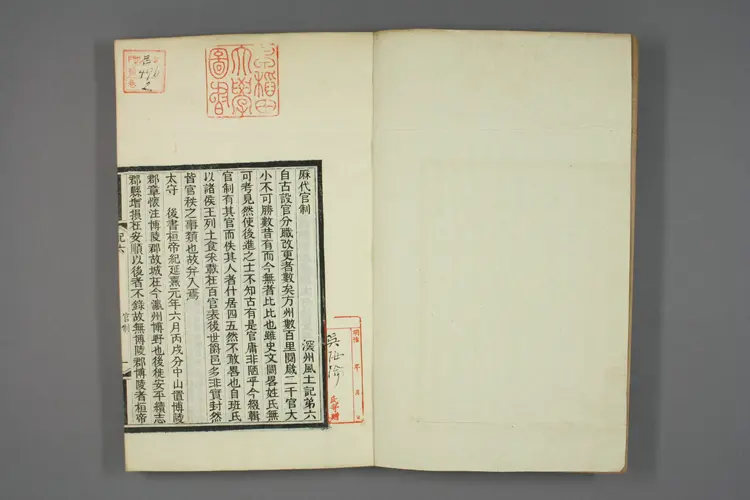 深州風土記第六
歷代官制
自古設官分職改更者數矣方州數百里閱歲二千官大
小不可勝數昔有而今無者比比也雖史文闊畧姓氏無
可考見然使後進之士不知古有是官庸非陋乎今綴輯
官制有其官而佚其人者什居四五然不敢畧也自班氏
以諸侯王列土食采載在百官表後世爵邑多非實封然
皆官秩之事類也故弁入焉
太守 後書桓帝紀延熹元年六月丙戌分中山置博陵
郡章懷注博陵郡故城在今瀛州博野也後徙安平續志
郡縣增損在安順以後者不錄故無博陵郡博陵者桓帝
記六
官制
一
早稻田
大學
圖書
明治 年 月 日
氏寄贈